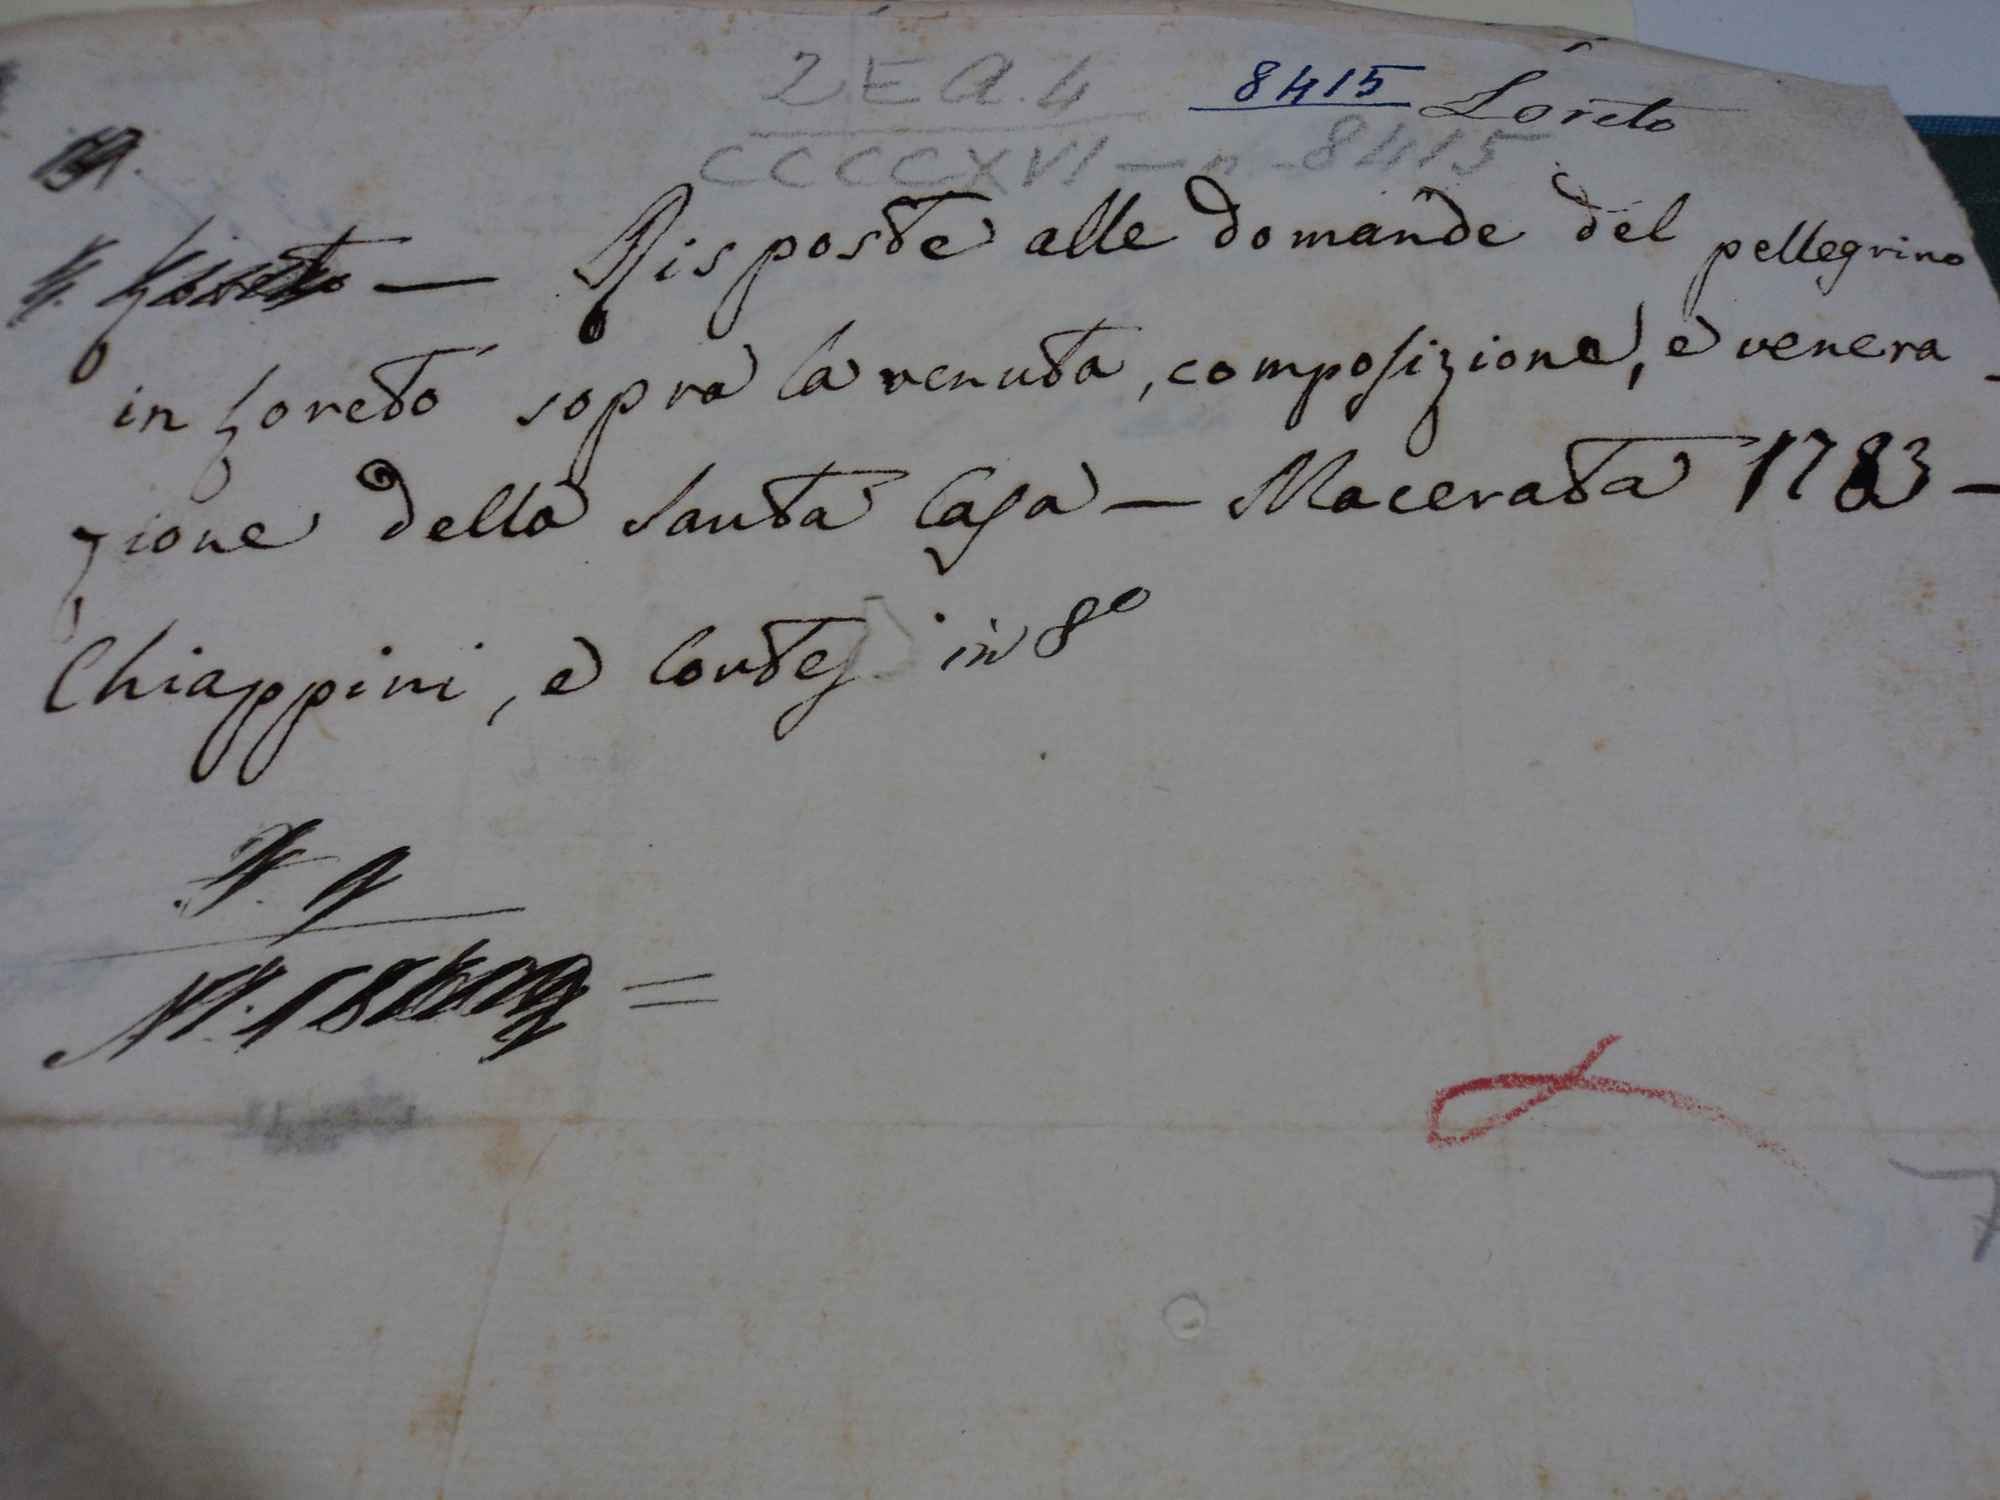 2.E A.4
8415 Loreto
CCCCXVI — n. 8415
— Risposte alle domande del pellegrino
in Loreto sopra la venuta, composizione, e venera-
zione della Santa Casa — Macerata 1783 —
Chiappini, e Cortesi in 8º
7